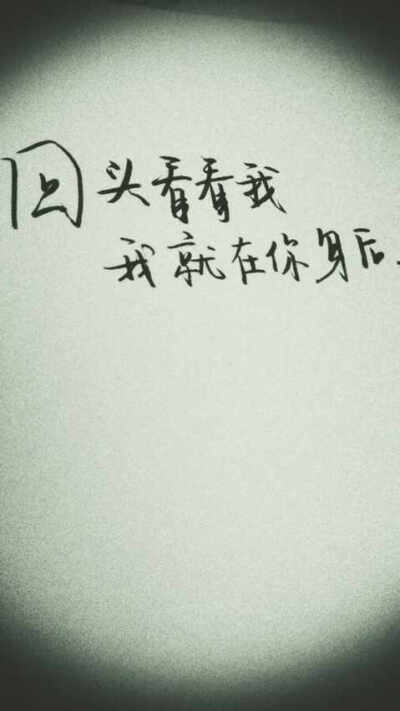 回头看看我
我就在你身后.